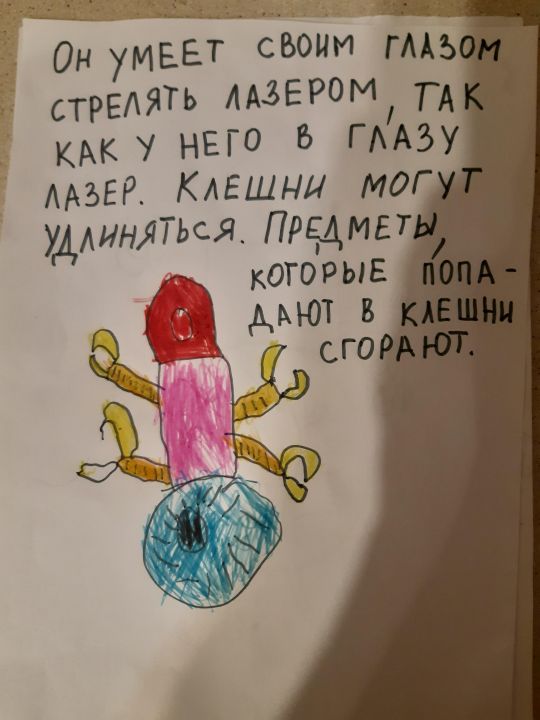 Он умеет своим глазом
стрелять лазером, так
как у него в глазу
лазер. Клешни могут
удлиняться. Предметы,
которые попа-
дают в клешни
сгорают.